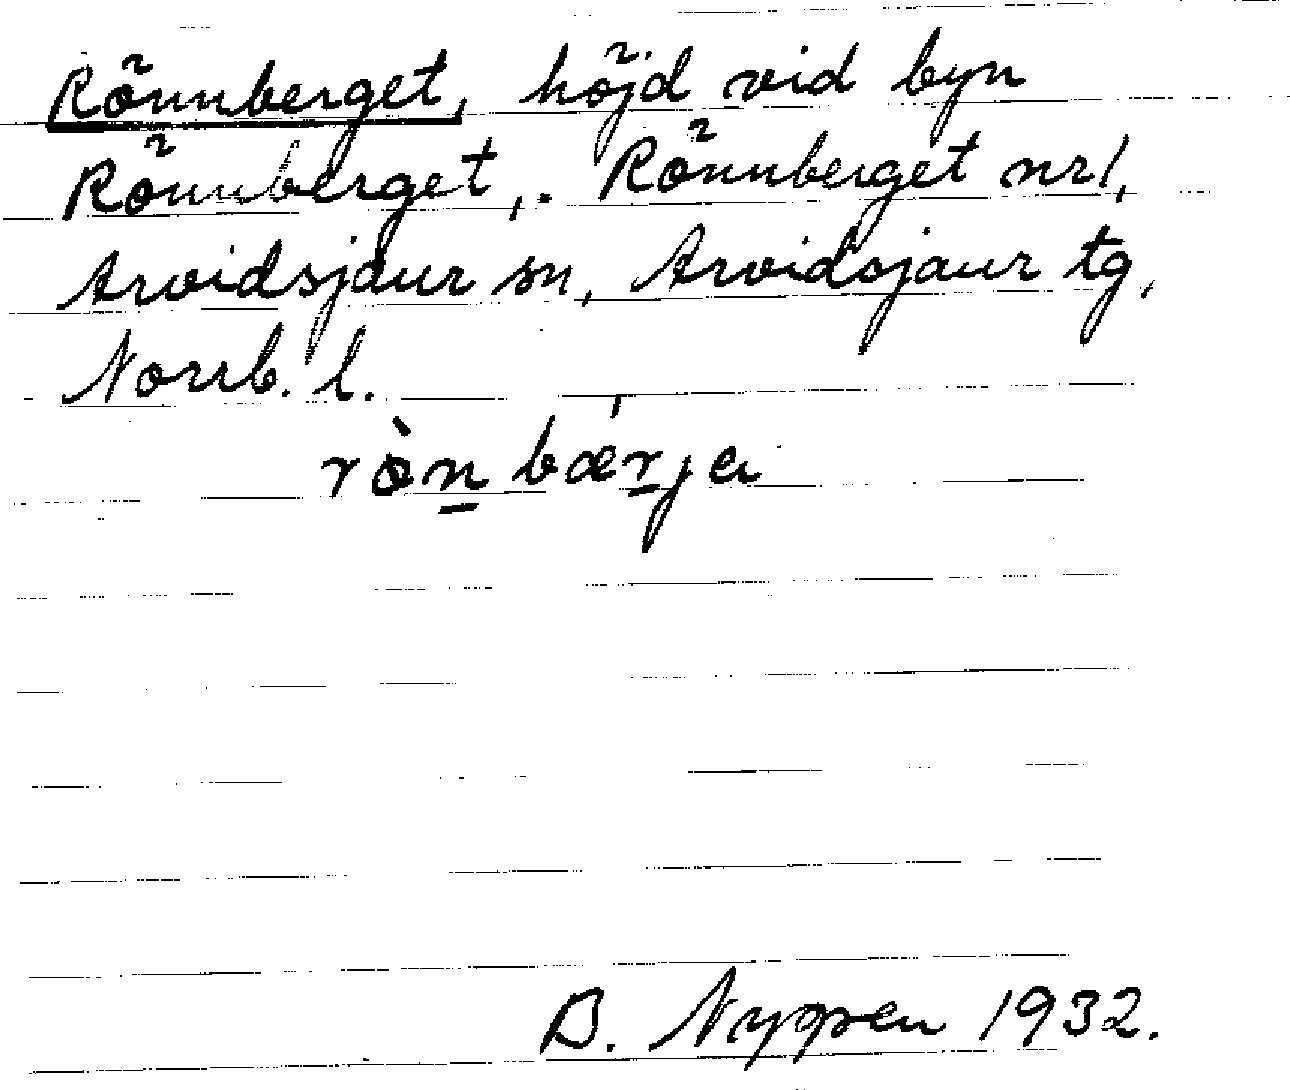 Rönnberget, höjd vid byn
Rönnberget,. Rönnberget nr 1,
Arvidsjaur sn, Arvidsjaur tg,
Norrb. l.
B. Nygren 1932.